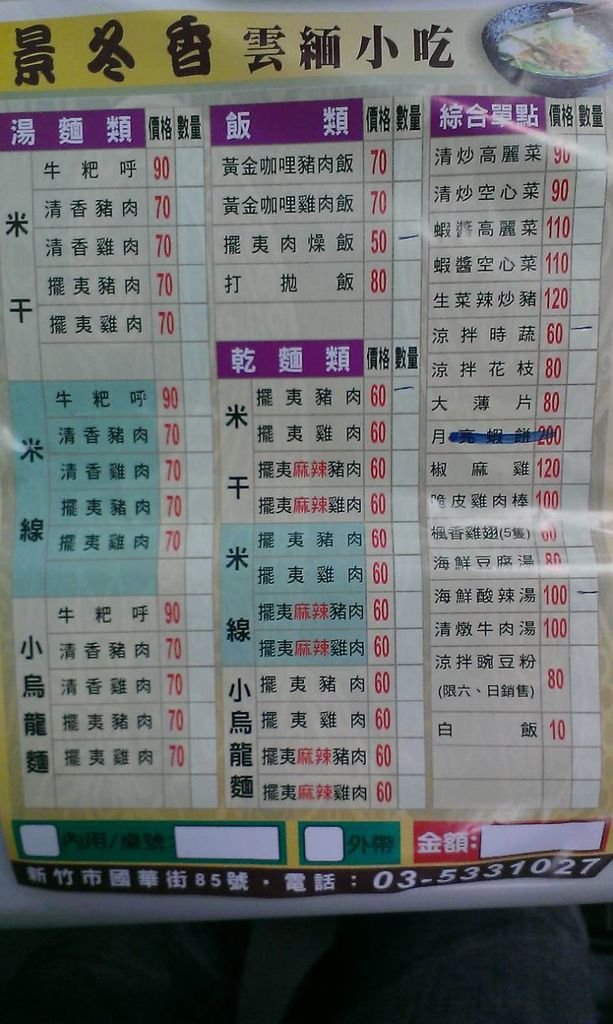 景冬香 雲緬小吃
湯麵類 價格 數量
米干
牛粑呼 90
清香豬肉 70
清香雞肉 70
擺夷豬肉 70
擺夷雞肉 70
米線
牛粑呼 90
清香豬肉 70
清香雞肉 70
擺夷豬肉 70
擺夷雞肉 70
小烏龍麵
牛粑呼 90
清香豬肉 70
清香雞肉 70
擺夷豬肉 70
擺夷雞肉 70
飯類 價格 數量
黃金咖哩豬肉飯 70
黃金咖哩雞肉飯 70
擺夷肉燥飯 50
打拋飯 80
乾麵類 價格 數量
米干
擺夷豬肉 60
擺夷雞肉 60
擺夷麻辣豬肉 60
擺夷麻辣雞肉 60
米線
擺夷豬肉 60
擺夷雞肉 60
擺夷麻辣豬肉 60
擺夷麻辣雞肉 60
小烏龍麵
擺夷豬肉 60
擺夷雞肉 60
擺夷麻辣豬肉 60
擺夷麻辣雞肉 60
綜合單點 價格 數量
清炒高麗菜 90
清炒空心菜 90
蝦醬高麗菜 110
蝦醬空心菜 110
生菜辣炒豬 120
涼拌時蔬 60
涼拌花枝 80
大薄片 80
月亮蝦餅 200
椒麻雞 120
脆皮雞肉棒 100
楓香雞翅(5隻) 60
海鮮豆腐湯 80
海鮮酸辣湯 100
清燉牛肉湯 100
涼拌豌豆粉 80
(限六、日銷售)
白飯 10
內用/桌號: 外帶 金額:
新竹市國華街85號・電話：03-5331027